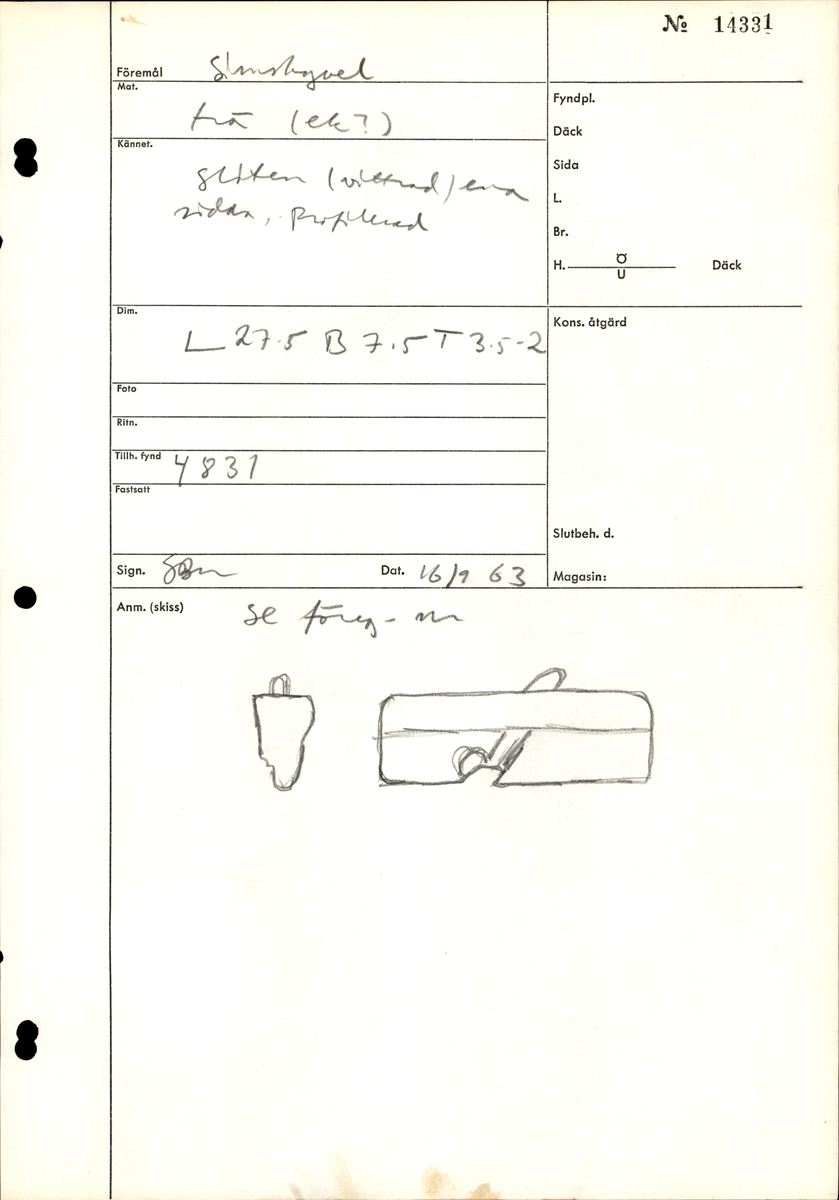 No 14331
Föremål Simshyvel
Mat.
trä (ek?)
Kännet.
sliten (vittrad) ena
sidan, profilerad
Dim.
L 27.5 B 7.5 T 3.5-2
Foto
Ritn.
Tillh. fynd 4831
Fastsatt
Sign. Dat. 16/9 63
Fyndpl.
Däck
Sida
L.
Br.
H. Ö Däck
U
Kons. åtgärd
Slutbeh. d.
Magasin:
Anm. (skiss) se föreg. nr